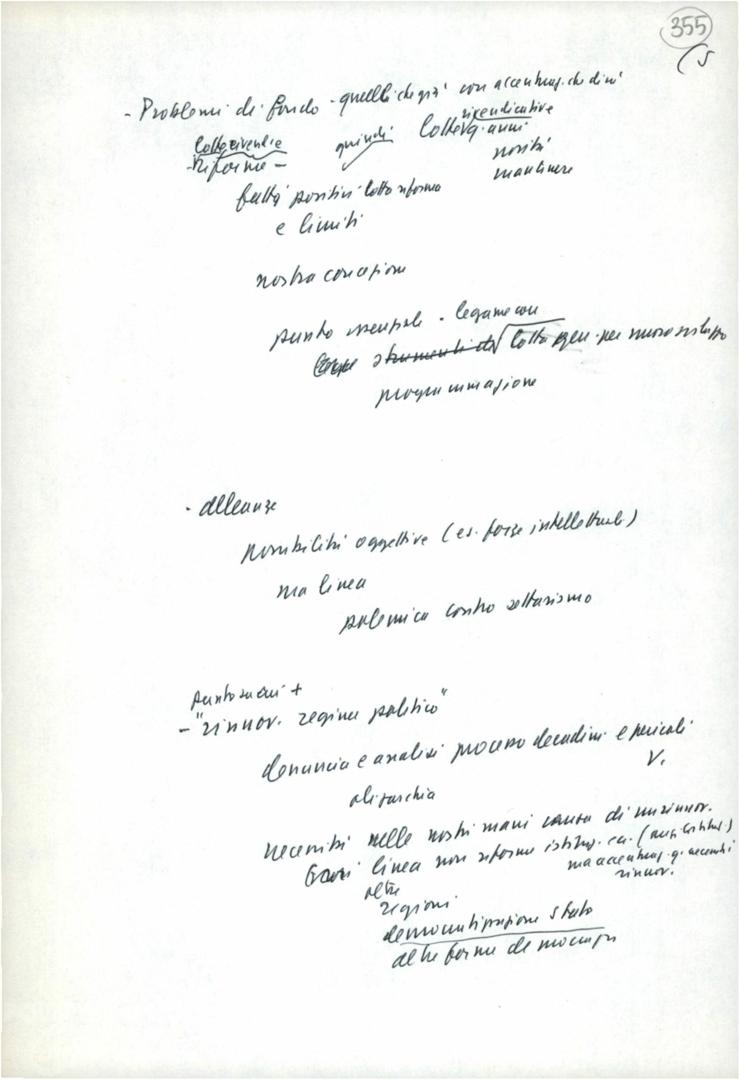 355
(5
- Problemi di fondo - quelli che già con accentuaz. che dirò
Lotte rivendic
rivendicative
- Riforme -
quindi
Lotte q. anni
novità
mantenere
fatti positivi lotta riforma
e limiti
nostra concezione
punto essenziale - legame con
strumenti di lotta gen. per nuovo sviluppo
programmazione
- Alleanze
possibilità oggettive (es. forze intellettuali)
ma linea
polemica contro settarismo
+
- "rinnov. regime politico"
denuncia e analisi processo decadim. e pericoli
V.
oligarchia
necessità nelle nostri mani causa di un rinnov.
linea non riforme istituz. ecc.
ma accentuaz. q. necessità
rinnov.
oltre
regioni
democratizzazione stato
altre forme democraz